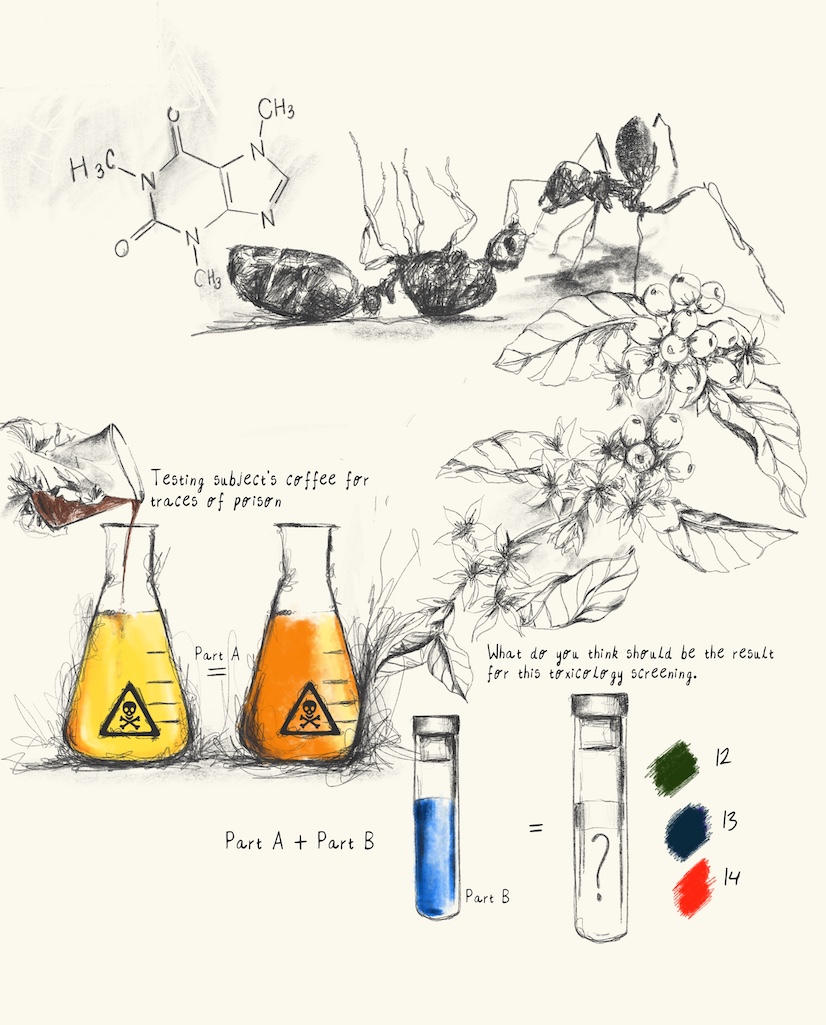 CH3
O
H3C
N
N
N
N
O
CH3
Testing subject's coffee for
traces of poison
Part A
=
What do you think should be the result
for this toxicology screening.
12
13
14
Part A + Part B
=
?
Part B